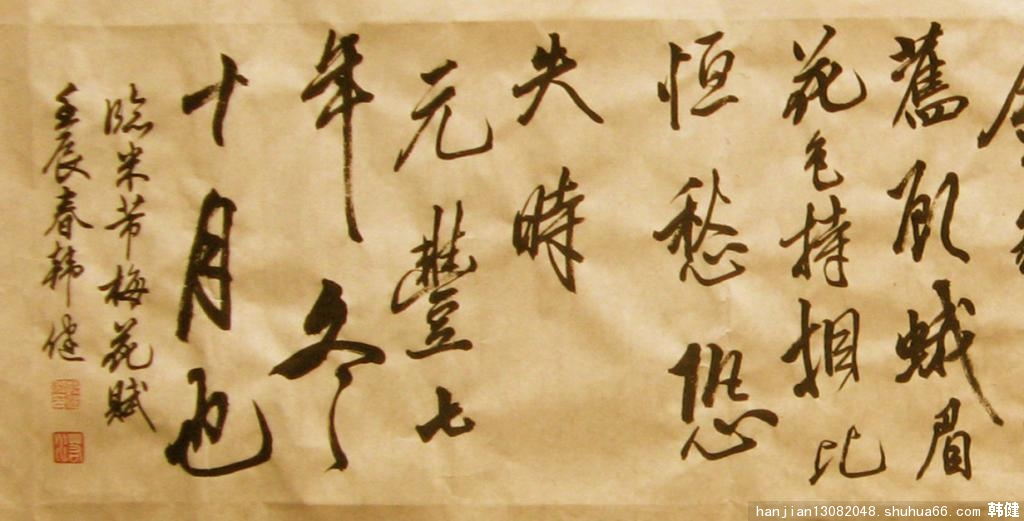 舊顧蛾眉
花色持相比
恒愁恐
失時
元豐七
年冬
十月也
臨米芾梅花賦
壬辰春韩健
hanjian13082048.shuhua66.com 韩健